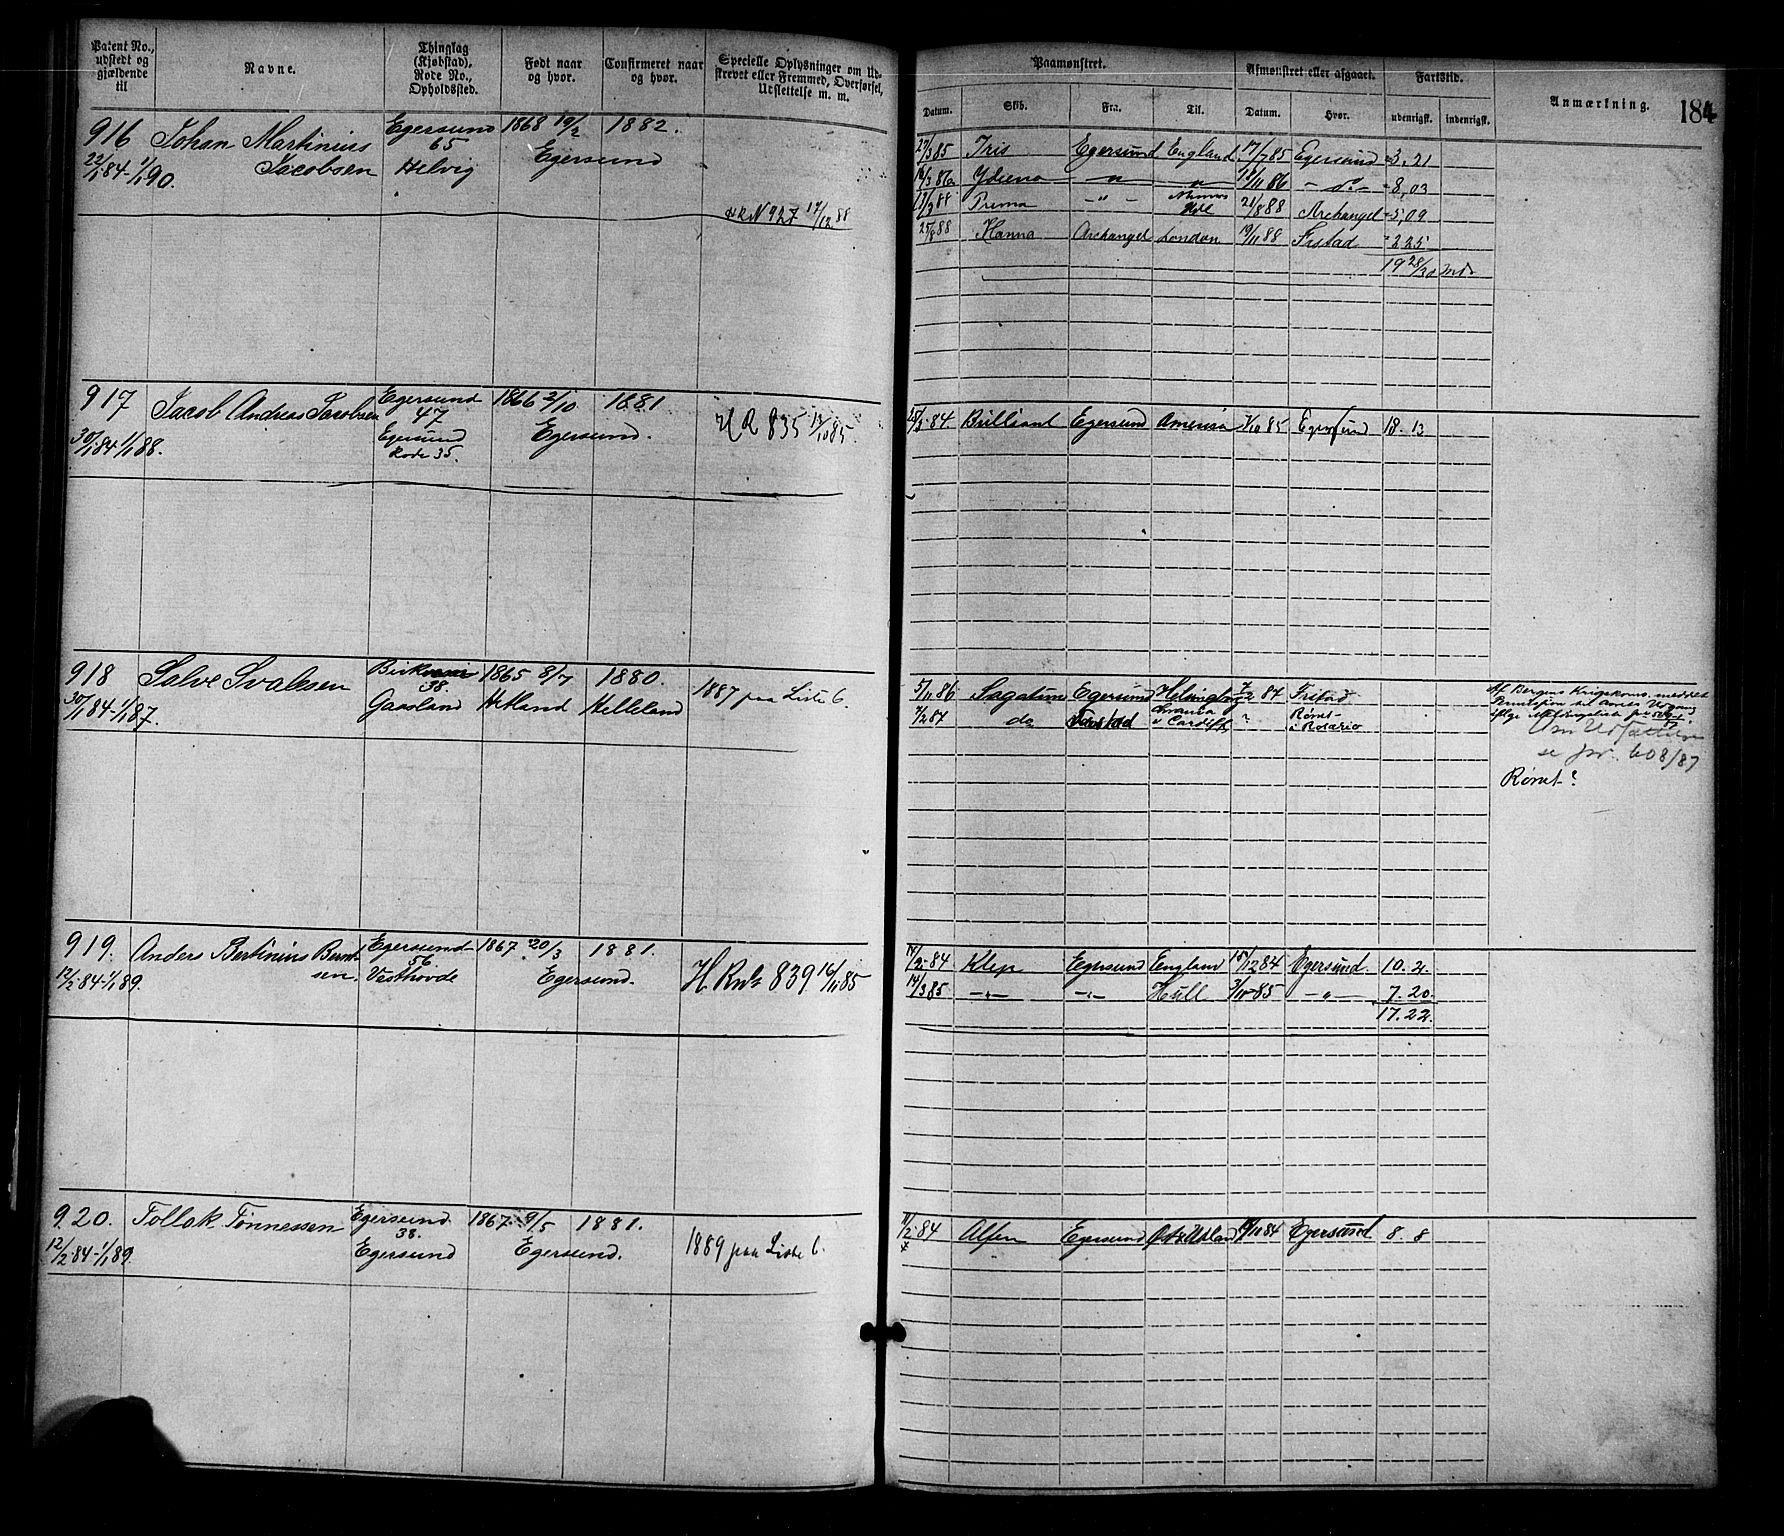 Patent No., udstedt og gjældende til
Navne.
Thinglag (Kjøbstad), Rode No., Opholdssted.
Født naar og hvor.
Confirmeret naar og hvor.
Specielle Oplysninger om Udskrevet eller Fremmed, Overførsel, Udslettelse m. m.
Paamønstret.
Datum.
Skib.
Fra.
Til.
Afmønstret eller afgaaet.
Datum.
Hvor.
Fartstid.
udenrigsk.
indenrigsk.
Anmærkning.
184
916 Johan Martinius Egersund 1868 19/2 1882.
65
22/1 84 - 1/1 90. Jacobsen Helvig Egersund
HRN 927 17/12 88
27/3 85 Iris Egersund England 17/7 85 Egersund 3,21
86 " " 86 - do - 8,03
13/3 88 Prima - " - 21/8 88 Archangel 5,09
25/8 88 Hanna Archangel London 19/11 88 Frstad 2 25
19 28/30
917 Jacob Andreas Jacobsen Egersund 1866 2/10 1881
47
30/1 84 1/1 88. Egersund Egersund. HR 835 85.
Rode 35.
84 Brilliant Egersund Amerika 85 Egersund 18. 13
918 Salve Svalesen 1865 8/7 1880.
38.
30/1 84 1/1 87. Gaasland Hetland Helleland 1887 paa Liste 6.
5/11 86 Sagatun Egersund 87 Fristad
7/2 87 do Fristad v Cardiff ? Rømt i Rosario
se jr. 608/87
Rømt?
919. Anders Bertinius Bernt- Egersund 1867 20/3 1881.
56
12/2 84 - 1/1 89. sen. Vesthovde Egersund. H Rul 839 16/11 85
84 Klep Egersund England 15/12 84 Egersund. 10. 2.
14/3 85 - " - - " - Hull 85 - " - 7. 20.
17. 22.
920. Tollak Tønnessen Egersund 1867 9/5 1881.
38.
12/2 84 - 1/1 89. Egersund Egersund. 1889 paa Liste 6.
11/2 84 Alfen Egersund 84 Egersund 8. 8